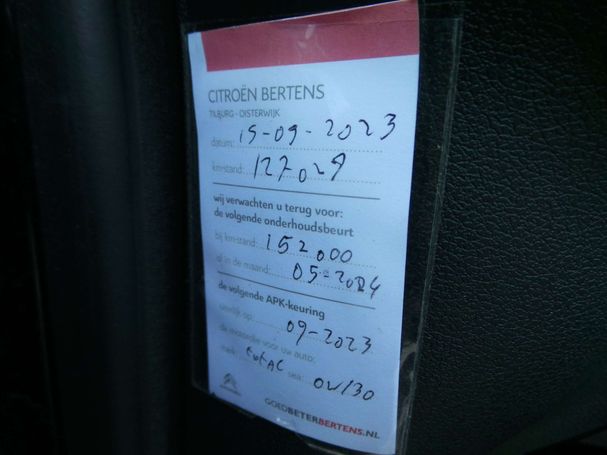 CITROËN BERTENS
TILBURG - OISTERWIJK
datum: 15-09-2023
km-stand: 127029
wij verwachten u terug voor:
de volgende onderhoudsbeurt
bij km-stand: 152000
of in de maand: 05-2024
de volgende APK-keuring
uiterlijk op: 09-2023
de motorolie voor uw auto:
merk: sae: 0W/30
GOEDBETERBERTENS.NL